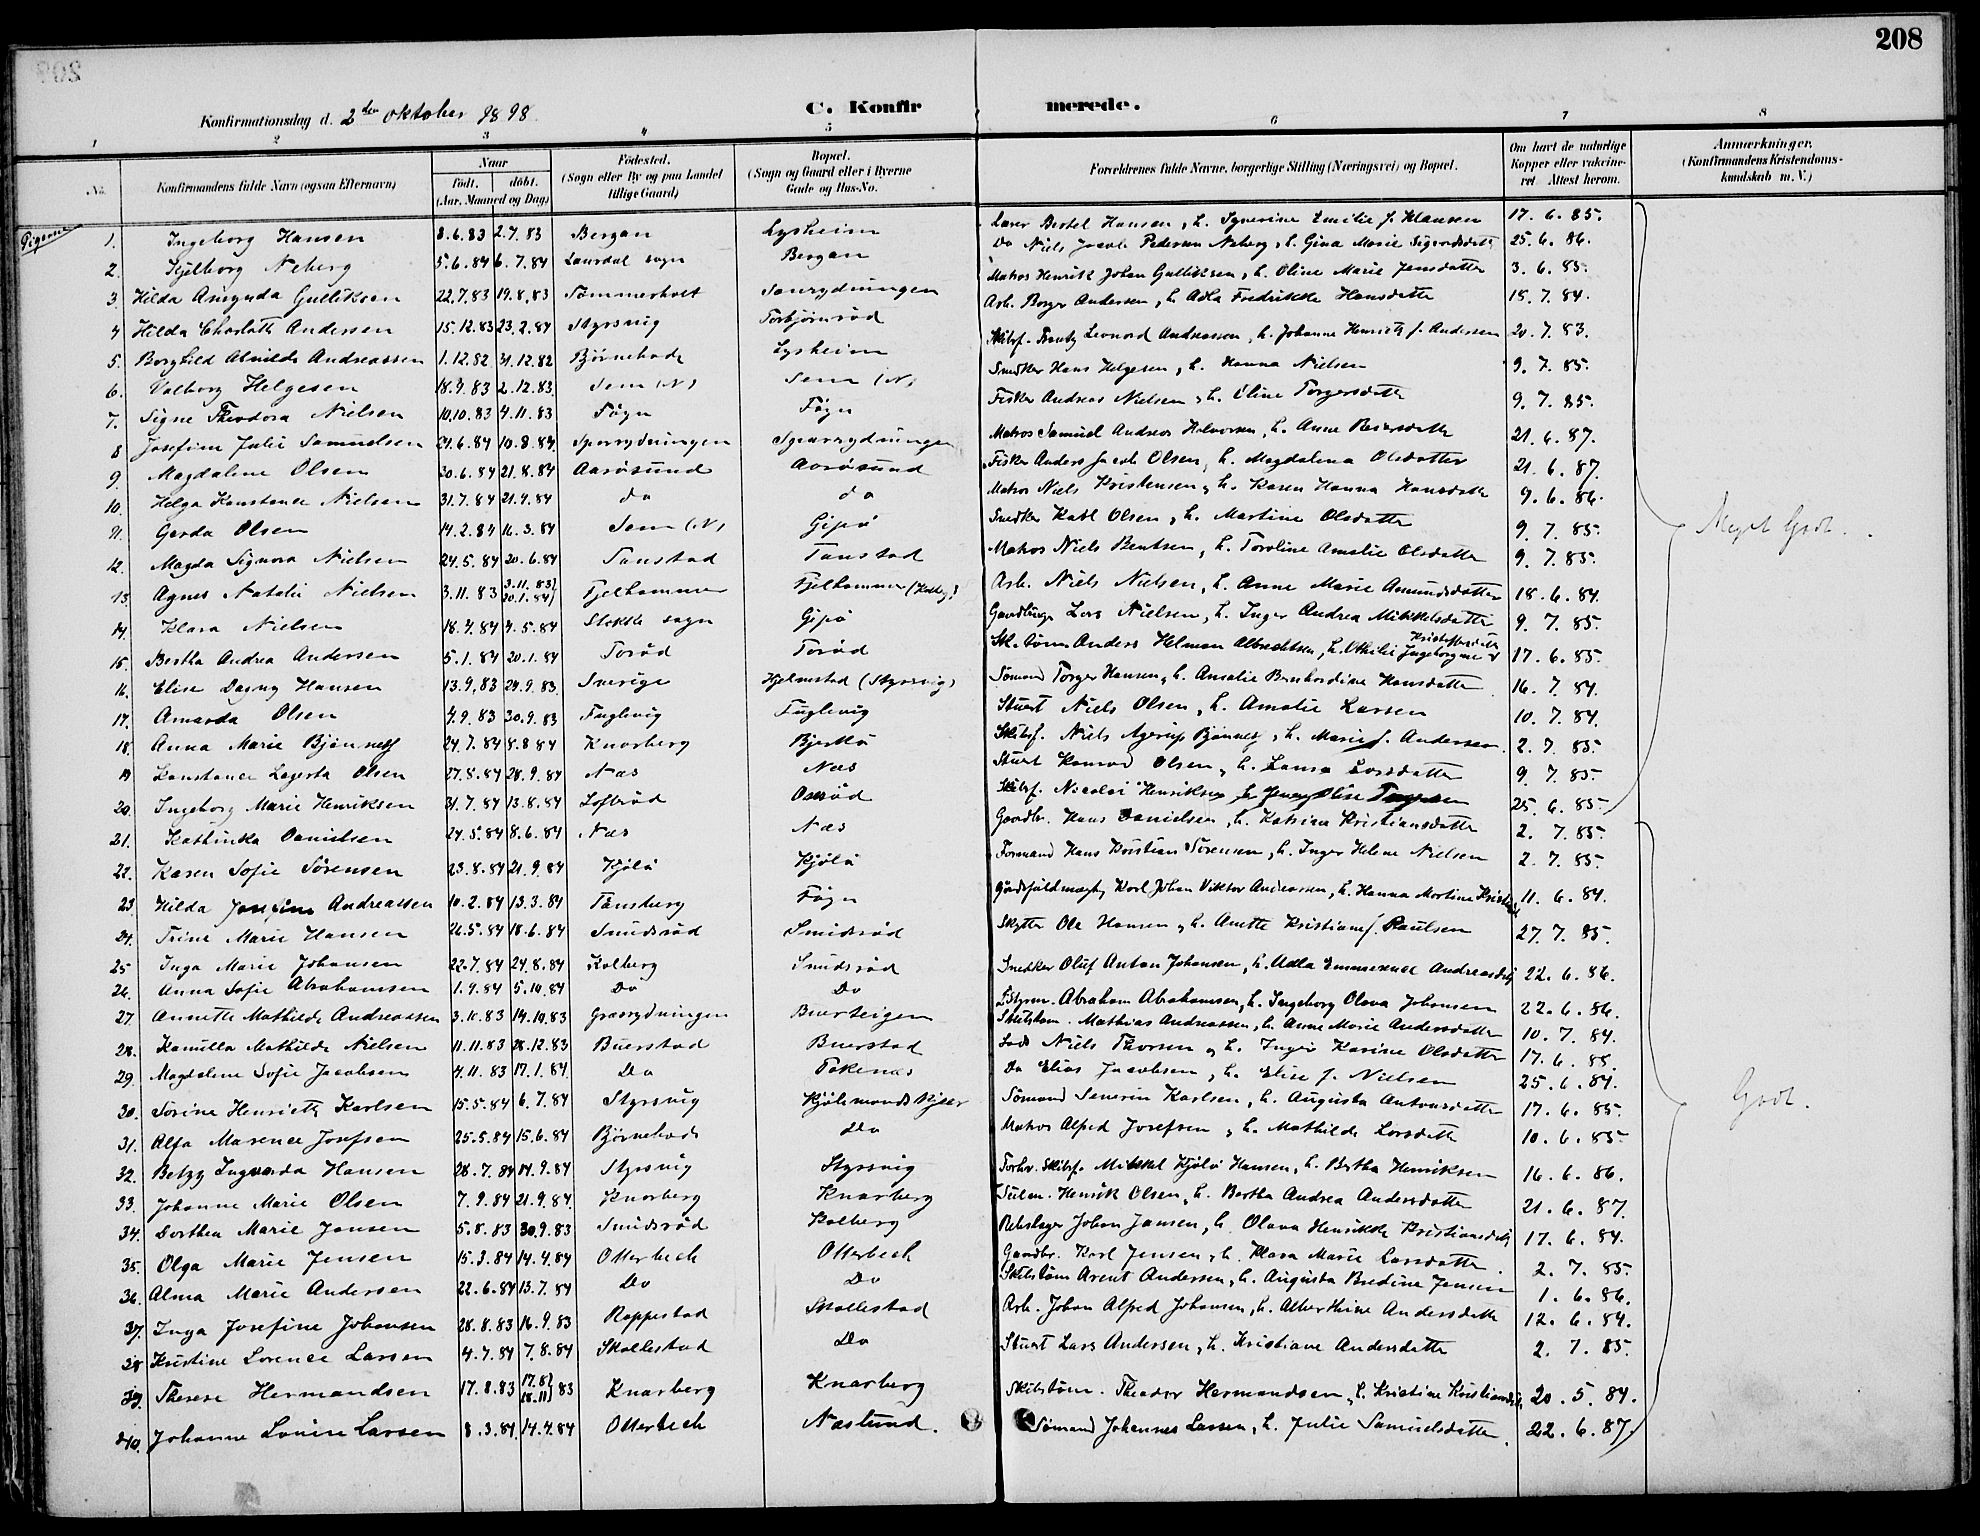 208
Konfirmationsdag d. 2den oktober 1898.
C. Konfirmerede.
1 2 3 4 5 6 7 8
No.
Konfirmandens fulde Navn (ogsaa Efternavn)
Naar født. døbt. (Aar, Maaned og Dag)
Fødested. (Sogn eller By og paa Landet tillige Gaard)
Bopæl. (Sogn og Gaard eller i Byerne Gade og Hus-No.
Forældrenes fulde Navne, borgerlige Stilling (Næringsvei) og Bopæl.
Om havt de naturlige Kopper eller vakcineret. Attest herom.
Anmærkninger. (Konfirmandens Kristendomskundskab m. V.)
Pigerne
1. Ingeborg Hansen 8.6.83 2.7.83 Bergan Lysheim Larer Bertel Hansen, h. Synverine Emilie f. Klausen 17.6.85.
2. Neberg 5.6.84 6.7.84 Laurdal sogn Bergan Do Niels Jacob Pedersen Neberg, h. Gina Marie Sigvardsdatt 25.6.86.
3. Hilda Amanda Gulliksen 22.7.83 19.8.83 Sømmerholt Saurydningen Matros Henrik Johan Gulliksen, h. Oline Marie Jensdatter 3.6.85.
4 Hilda Charlotte Andersen 15.12.83 23.2.84 Styrsvig Torbjørnrød Arb. Borger Andersen, h. Adla Fredrikke Hansdatter 15.7.84.
5. Borghild Alvilde Andreassen 1.12.82 31.12.82 Bjørnebode Lysheim Skibsf. Frantz Leonard Andreassen, h. Johanne Henriette f. Andersen 20.7.83.
6. Valborg Helgesen 18.9.83 2.12.83 Sem (N) Sem (N) Snedker Hans Helgesen, h. Hanna Nielsen 9.7.85.
7. Signe Theodora Nielsen 10.10.83 4.11.83 Føyn Føyn Fisker Andreas Nielsen, h. Oline Torgersdatter 9.7.85.
8 Josefine Julie Samuelsen 24.6.84 10.8.84 Sparrydningen Sparrydningen Matros Samuel Andreas Halvorsen, h. Anne Reiersdatter 21.6.87.
9. Magdaline Olsen 30.6.84 21.8.84 Aarøsund Aarøsund Fisker Anders Jacob Olsen, h. Magdalena Olsdatter 21.6.87.
10. Helga Konstance Nielsen 31.7.84 21.9.84 do do Matros Niels Kristensen, h. Karen Hanna Hansdatter 9.6.86.
11. Gerda Olsen 14.2.84 16.3.84 Sem (N) Gipø Snedker Karl Olsen, h. Martine Olsdatter 9.7.85.
12. Magda Signora Nielsen 24.5.84 20.6.84 Tanstad Tanstad Matros Niels Bentsen, h. Toroline Amalie Olsdatter 9.7.85.
13. Agnes Natalie Nielsen 3.11.83 3.11.83) 20.1.84) Fjelhammer Fjelhammer Arb. Niels Nielsen, h. Anne Marie Amundsdatter 18.6.84.
14. Klara Nielsen 18.4.84 4.5.84 Stokke sogn Gipø Gaardbruger Lars Nielsen, h. Inger Andrea Mikkelsdatter 9.7.85.
15. Bertha Andrea Andersen 5.1.84 20.1.84 Torød Torød Sk.tøm. Anders Helman Albrechtsen, h. Othilie Ingeborgine Kristoffersdatter 17.6.85.
16. Elise Dagny Hansen 13.9.83 29.9.83 Sverige Hjelmstad (Styrsvig) Sømand Torger Hansen, h. Amalie Bernhardine Hansdatter 16.7.84.
17. Amanda Olsen 4.9.83 30.9.83 Fuglevig Fuglevig Stuert Niels Olsen, h. Amalie Larsen 10.7.84.
18. Anna Marie Bjønness 24.7.84 8.8.84 Knarberg Bjerkø Skibsf. Niels Agerup Bjønnes, h. Marie f. Andersen 2.7.85.
19 Konstance Lagerta Olsen 27.8.84 28.9.84 Næs Næs Stuert Konrad Olsen, h. Laura Larsdatter 9.7.85.
20. Ingeborg Marie Henriksen 31.7.84 13.8.84 Loftsrød Oserød Skibsf. Nicolai Henriksen, h. Jenny Elise 25.6.85.
21. Kathinka Danielsen 24.5.84 8.6.84 Næs Næs Gaardbr. Hans Danielsen, h. Katrine Kristiansdatter 2.7.85.
22. Karen Sofie Sørensen 23.8.84 21.9.84 Kjølø Kjølø Formand Hans Kristian Sørensen, h. Inger Helene Nielsen 2.7.85.
23. Hilda Josefine Andreassen 10.2.84 13.3.84 Tønsberg Føyn Gaardsfuldmægt. Karl Johan Viktor Andreassen, h. Hanna Martine 11.6.84.
24. Trine Marie Hansen 26.5.84 18.6.84 Smidsrød Smidsrød Skytter Ole Hansen, h. Anette Kristiane f. Paulsen 27.7.85.
25 Inga Marie Johansen 22.7.84 24.8.84 Kolberg Smidsrød Snedker Oluf Anton Johansen, h. Udla Emmerence Andreasd. 22.6.86.
26. Anna Sofie Abrahamsen 1.9.84 5.10.84 Do Do Abraham Abrahamsen, h. Ingeborg Olava Johansen 22.6.86.
27. Annette Mathilde Andreassen 3.10.83 14.10.83 Græsrydningen Buerteigen Skibstøm. Mathias Andreassen, h. Anne Marie Andersdatter 10.7.84.
28. Kamilla Mathilde Nielsen 11.11.83 28.12.83 Buerstad Buerstad Lods Niels Thorsen, h. Inger Karine Olsdatter 17.6.85.
29. Magdalene Sofie Jacobsen 4.11.83 17.1.84 Do Fokenæs Do Elias Jacobsen, h. Elise f. Nielsen 25.6.84.
30. Sørine Henriette Karlsen 15.5.84 6.7.84 Styrsvig Kjølemandskjær Sømand Severin Karlsen, h. Augusta Antonsdatter 17.6.85.
31. Alfa Marence Josefsen 25.5.84 15.6.84 Bjørnebode Do Matros Alfred Josefsen, h. Mathilde Larsdatter 10.6.85.
32. Betzy Ingvarda Hansen 28.7.84 14.9.84 Styrsvig Styrsvig Forhv. Skibsf. Mikkel Kjølø Hansen, h. Bertha Henriksen 16.6.86.
33. Johanne Marie Olsen 7.9.84 21.9.84 Knarberg Knarberg Henrik Olsen, h. Bertha Andrea Andersdatter 21.6.87.
34. Dorthea Marie Jansen 5.8.83 30.9.83 Smidsrød Kolberg Rebslager Johan Jansen, h. Olava Henrikke Kristiansdatt 17.6.84.
35. Olga Marie Jensen 15.3.84 14.4.84 Otterbech Otterbech Gaardbr. Karl Jensen, h. Klara Marie Larsdatter 2.7.85.
36. Alma Marie Andersen 22.6.84 13.7.84 Do Do Skibstøm Arent Andersen, h. Augusta Bredine Jensen 1.6.86.
37. Inga Josefine Johansen 28.8.83 16.9.83 Roppestad Skallestad Arb. Johan Alfred Johansen, h. Alberthine Andersdatter 12.6.84.
38 Kristine Lorence Larsen 4.7.84 7.8.84 Skallestad Do Stuert Lars Andersen, h. Kristiane Andersdatter 2.7.85.
39. Therese Hermandsen 17.8.83 17.8) 18.11) 83 Knarberg Knarberg Skibstøm. Theodor Hermandsen, h. Kristine Kristiansd. 20.5.84.
40. Johanne Louise Larsen 8.3.84 14.4.84 Otterbech Næslund. Sømand Johannes Larsen, h. Julie Samuelsdatter. 22.6.87.
Meget Godt.
Godt.